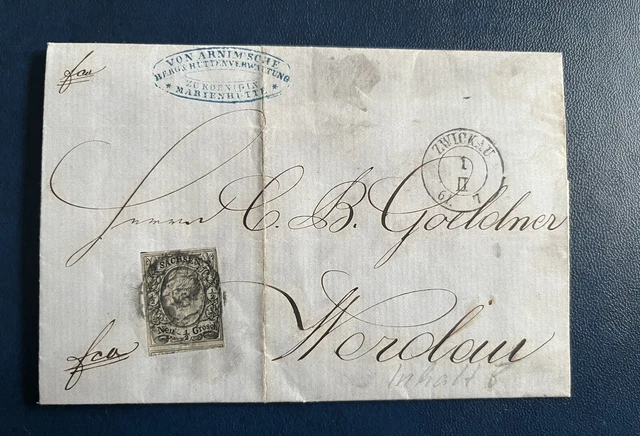 fco
VON ARNIM'SCHE
BERG & HÜTTENVERWALTUNG
ZU KOENIGIN
* MARIENHÜTTE *
ZWICKAU
1
II
61. 7
Herrn C. B. Goeldner
SACHSEN
Neu- ½ Grosch.
Werdau
fco
Inhalt